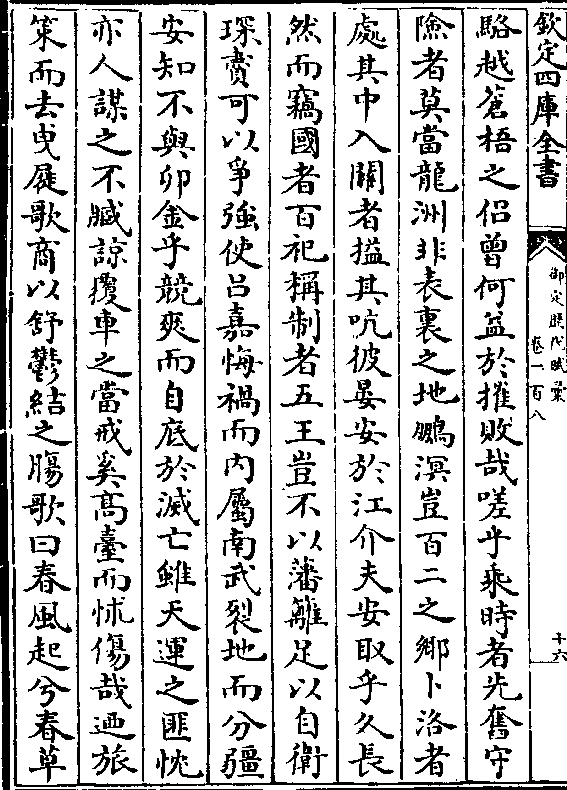 欽定四庫全書
御定歷代賦彙
卷一百八
十六
駱越蒼梧之侣曽何益於摧敗哉嗟乎乘時者先奮守
險者莫當龍洲非表裏之地鵬溟豈百二之鄉卜洛者
處其中入關者搤其吭彼晏安於江介夫安取乎久長
然而竊國者百祀稱制者五王豈不以藩籬足以自衛
琛賮可以爭強使吕嘉悔禍而内屬南武裂地而分疆
安知不與卯金乎競爽而自底於滅亡雖天運之匪忱
亦人謀之不臧諒覆車之當戒奚髙臺而怵傷哉迺旅
策而去曳屣歌商以舒鬱結之腸歌曰春風起兮春草